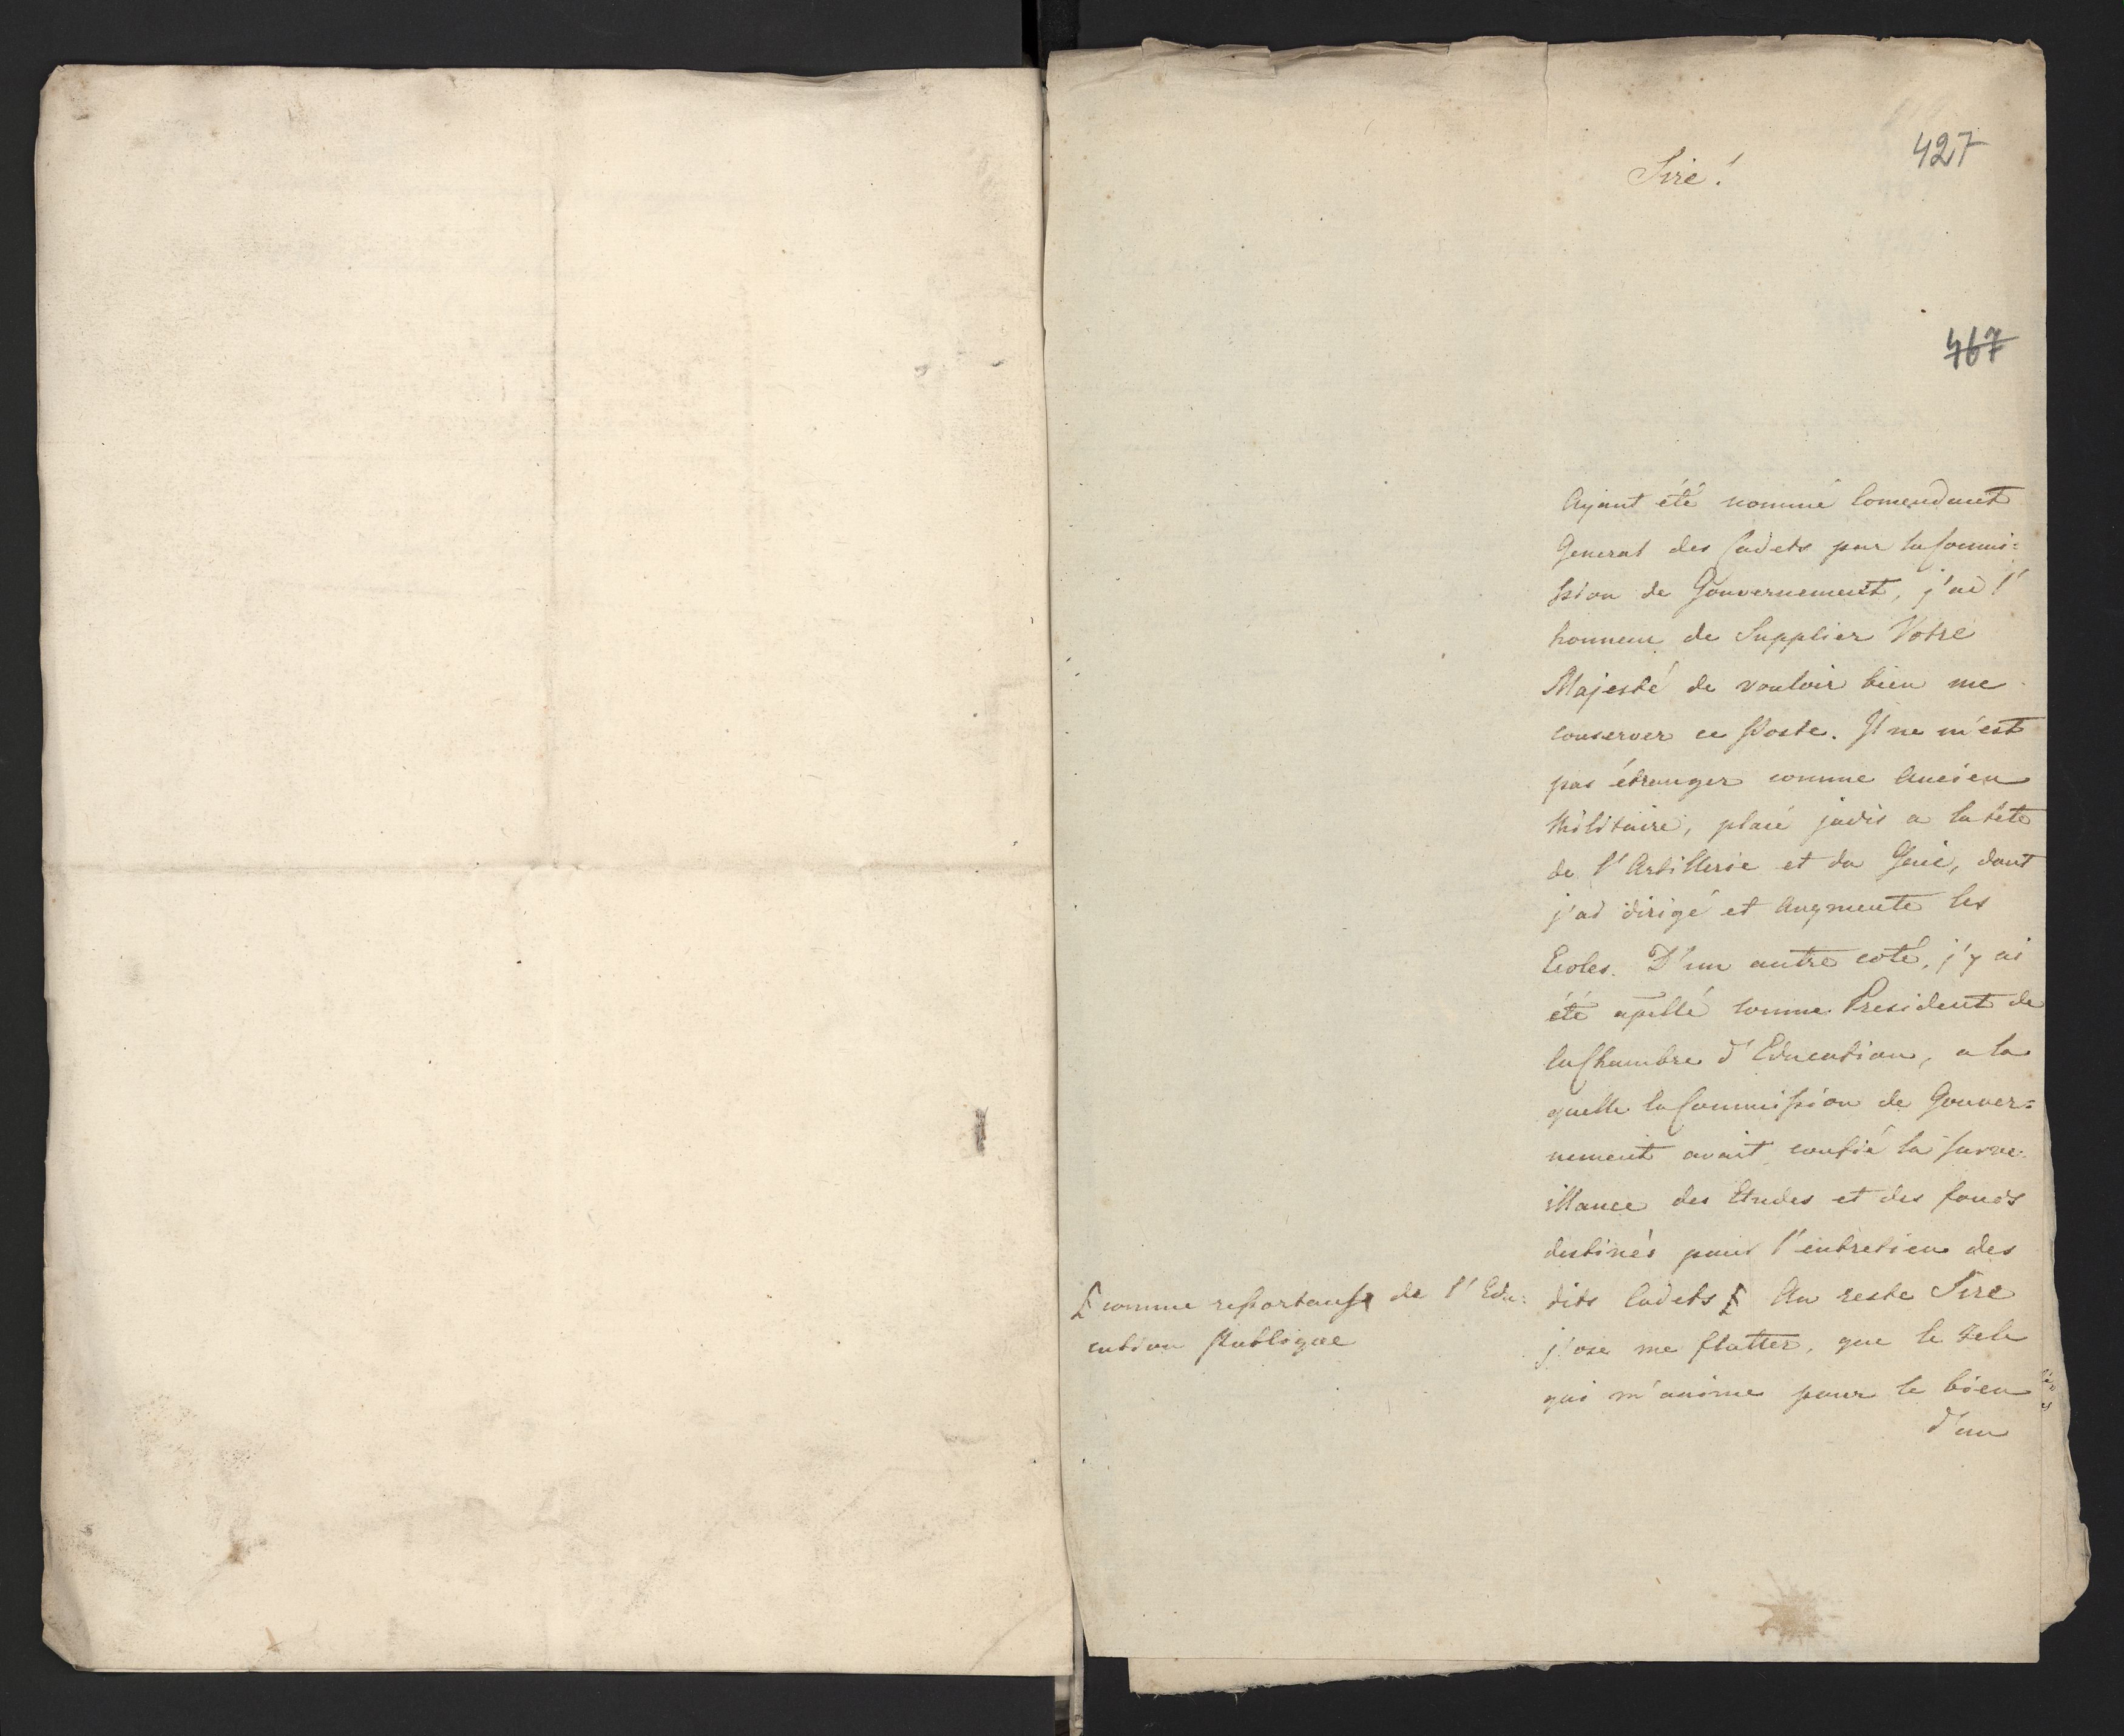 427
Sire!
467
Ayant été nommé Comendant
General des Cadets par la Commi=
ssion de Gouvernement, j'ai l'
honneur de Supplier Votre
Majesté de vouloir bien me
conserver ce Poste. Il ne m'est
pas étranger comme Ancien
Militaire, placé jadis a la tête
de l'Artillerie et du Genie, dont
j'ai dirigé et Augmenté les
Ecoles. D'un autre coté, j'y ai
été apellé comme President de
la Chambre d'Education, a la
quelle la Commission de Gouver=
nement avait confié la surve-
illance des Etudes et des fonds
destinés pour l'entretien des
dits Cadets Au reste Sire
comme ressortans de l'Edu=
cation Publique
j'ose me flatter, que le Zele
qui m'anime pour le bien
d'un